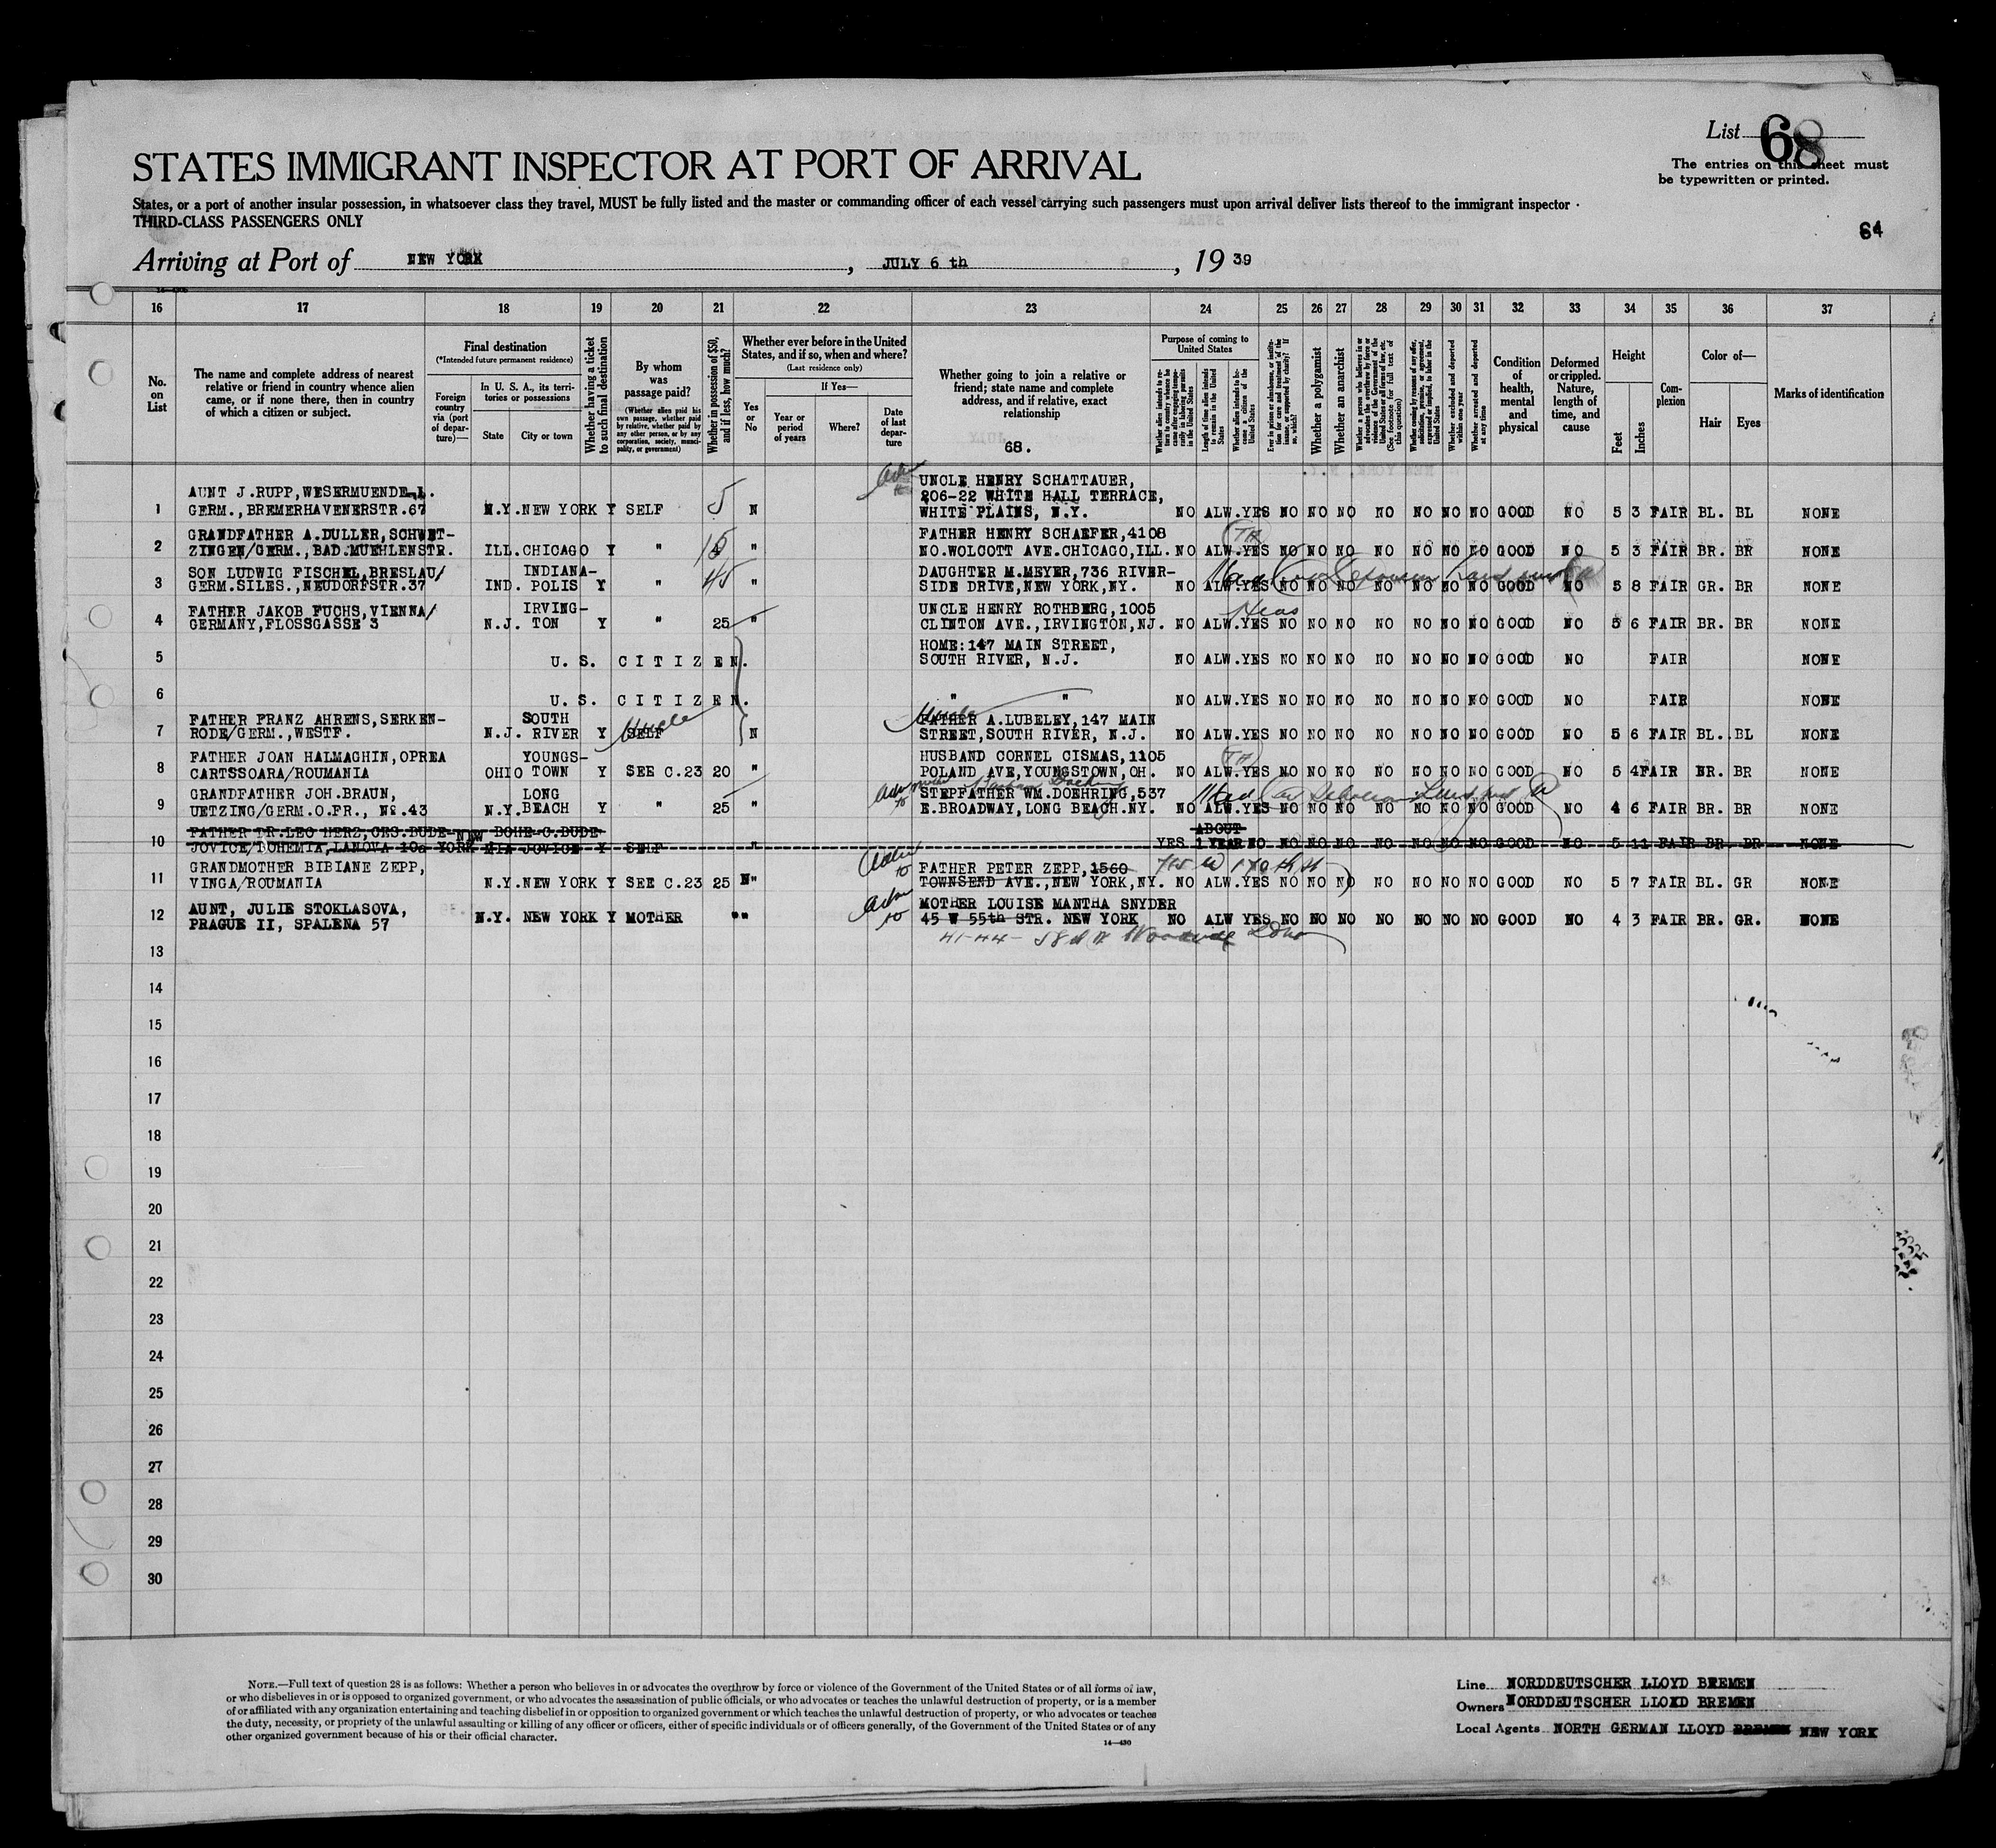 List 68
The entries on this sheet must
be typewritten or printed.
STATES IMMIGRANT INSPECTOR AT PORT OF ARRIVAL
States, or a port of another insular possession, in whatsoever class they travel, MUST be fully listed and the master or commanding officer of each vessel carrying such passengers must upon arrival deliver lists thereof to the immigrant inspector
THIRD-CLASS PASSENGERS ONLY
64
Arriving at Port of NEW YORK, JULY 6 th, 19 39
16 17 18 19 20 21 22 23 24 25 26 27 28 29 30 31 32 33 34 35 36 37
No. on List
The name and complete address of nearest
relative or friend in country whence alien
came, or if none there, then in country
of which a citizen or subject.
Final destination
(*Intended future permanent residence)
Foreign country via (port of departure)—
In U. S. A., its territories or possessions
State City or town
Whether having a ticket to such final destination
By whom was passage paid?
(Whether alien paid his own passage, whether paid by relative, whether paid by any other person, or by any corporation, society, municipality, or government)
Whether in possession of $50, and if less, how much?
Whether ever before in the United
States, and if so, when and where?
(Last residence only)
Yes or No
If Yes—
Year or period of years
Where?
Date of last departure
Whether going to join a relative or
friend; state name and complete
address, and if relative, exact
relationship
68.
Purpose of coming to United States
Length of time alien intends to remain in the United States
Whether alien intends to become a citizen of the United States
Whether a polygamist
Whether an anarchist
Whether excluded and deported within one year
Whether arrested and deported at any time
Condition of health, mental and physical
Deformed or crippled. Nature, length of time, and cause
Height
Feet Inches
Complexion
Color of—
Hair Eyes
Marks of identification
UNCLE HENRY SCHATTAUER,
AUNT J.RUPP,WESERMUENDE-L. 206-22 WHITE HALL TERRACE,
1 GERM.,BREMERHAVENERSTR.67 N.Y. NEW YORK Y SELF 5 N WHITE PLAINS, N.Y. NO ALW.YES NO NO NO NO NO NO NO GOOD NO 5 3 FAIR BL. BL NONE
GRANDFATHER A.DULLER,SCHWET- FATHER HENRY SCHAEFER,4108
2 ZINGEN/GERM.,BAD.MUEHLENSTR. ILL.CHICAGO Y " 15 " NO.WOLCOTT AVE.CHICAGO,ILL. NO ALW.YES NO NO NO NO NO NO NO GOOD NO 5 3 FAIR BR. BR NONE
SON LUDWIG FISCHEL,BRESLAU/ INDIANA- DAUGHTER M.MEYER,736 RIVER-
3 GERM.SILES.,NEUDORFSTR.37 IND. POLIS Y " 45 " SIDE DRIVE,NEW YORK,NY. NO ALW.YES NO NO NO NO NO NO NO GOOD NO 5 8 FAIR GR. BR NONE
FATHER JAKOB FUCHS,VIENNA/ IRVING- UNCLE HENRY ROTHBERG,1005 Hias
4 GERMANY,FLOSSGASSE 3 N.J. TON Y " 25 " CLINTON AVE.,IRVINGTON,NJ. NO ALW.YES NO NO NO NO NO NO NO GOOD NO 5 6 FAIR BR. BR NONE
HOME:147 MAIN STREET,
5 U. S. CITIZEN. SOUTH RIVER, N.J. NO ALW.YES NO NO NO NO NO NO NO GOOD NO FAIR NONE
6 U. S. CITIZEN. " " NO ALW.YES NO NO NO NO NO NO NO GOOD NO FAIR NONE
FATHER FRANZ AHRENS,SERKEN- SOUTH Uncle FATHER A.LUBELEY,147 MAIN
7 RODE/GERM.,WESTF. N.J. RIVER Y SELF Uncle N STREET,SOUTH RIVER, N.J. NO ALW.YES NO NO NO NO NO NO NO GOOD NO 5 6 FAIR BL. BL NONE
FATHER JOAN HALMAGHIN,OPREA YOUNGS- HUSBAND CORNEL CISMAS,1105
8 CARTSSOARA/ROUMANIA OHIO TOWN Y SEE C.23 20 " POLAND AVE,YOUNGSTOWN,OH. NO ALW.YES NO NO NO NO NO NO NO GOOD NO 5 4 FAIR BR. BR NONE
GRANDFATHER JOH.BRAUN, LONG STEPFATHER WM.DOEHRING,537
9 UETZING/GERM.O.FR., Nr.43 N.Y. BEACH Y " 25 " E.BROADWAY,LONG BEACH.NY. NO ALW.YES NO NO NO NO NO NO NO GOOD NO 4 6 FAIR BR. BR NONE
FATHER DR.LEO HERZ,CES.BUDE- NEW BOHE-C.BUDE- ABOUT
10 JOVICE/BOHEMIA,LANOVA 10a YORK MIA JOVICE Y SELF " YES 1 YEAR NO NO NO NO NO NO NO NO GOOD NO 5 11 FAIR BR. BR NONE
GRANDMOTHER BIBIANE ZEPP, FATHER PETER ZEPP,1560
11 VINGA/ROUMANIA N.Y. NEW YORK Y SEE C.23 25 N" TOWNSEND AVE.,NEW YORK,NY. NO ALW.YES NO NO NO NO NO NO NO GOOD NO 5 7 FAIR BL. GR NONE
AUNT, JULIE STOKLASOVA, MOTHER LOUISE MANTHA SNYDER
12 PRAGUE II, SPALENA 57 N.Y. NEW YORK Y MOTHER "" 45 W 55th STR. NEW YORK NO ALW YES NO NO NO NO NO NO NO GOOD NO 4 3 FAIR BR. GR. NONE
13
14
15
16
17
18
19
20
21
22
23
24
25
26
27
28
29
30
NOTE.—Full text of question 28 is as follows: Whether a person who believes in or advocates the overthrow by force or violence of the Government of the United States or of all forms of law,
or who disbelieves in or is opposed to organized government, or who advocates the assassination of public officials, or who advocates or teaches the unlawful destruction of property, or is a member
of or affiliated with any organization entertaining and teaching disbelief in or opposition to organized government or which teaches the unlawful destruction of property, or who advocates or teaches
the duty, necessity, or propriety of the unlawful assaulting or killing of any officer or officers, either of specific individuals or of officers generally, of the Government of the United States or of any
other organized government because of his or their official character.
14—430
Line NORDDEUTSCHER LLOYD BREMEN
Owners NORDDEUTSCHER LLOYD BREMEN
Local Agents NORTH GERMAN LLOYD BREMEN NEW YORK